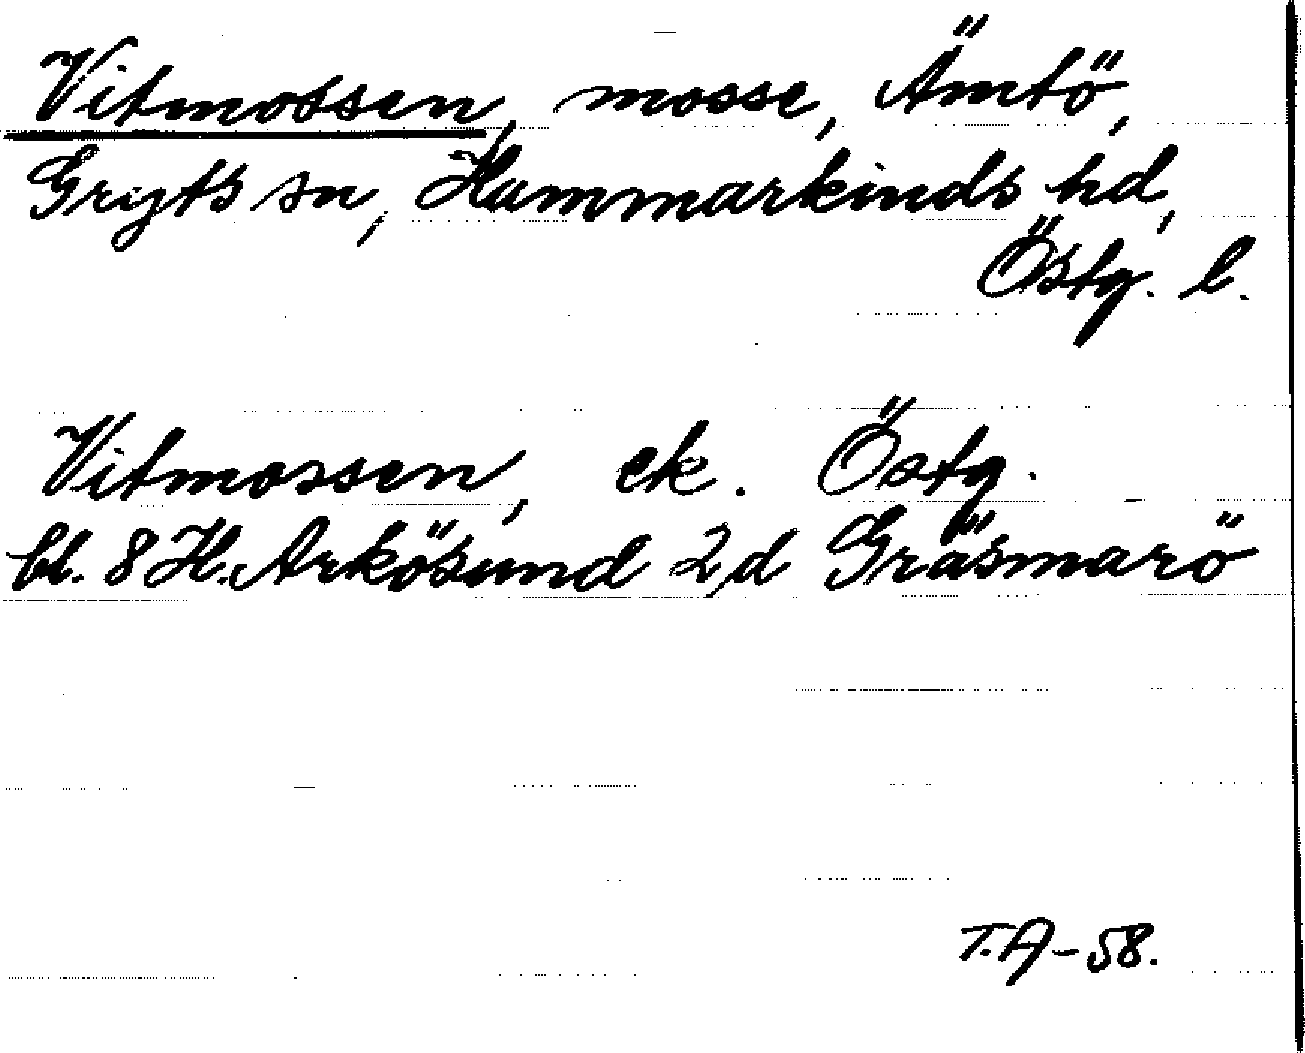 Vitmossen, mosse, Ämtö,
Gryts sn, Hammarkinds hd,
Östg. l.
Vitmossen, ek. Östg.
bl. 8 H. Arkösund 2,d Gräsmarö
T.A-58.